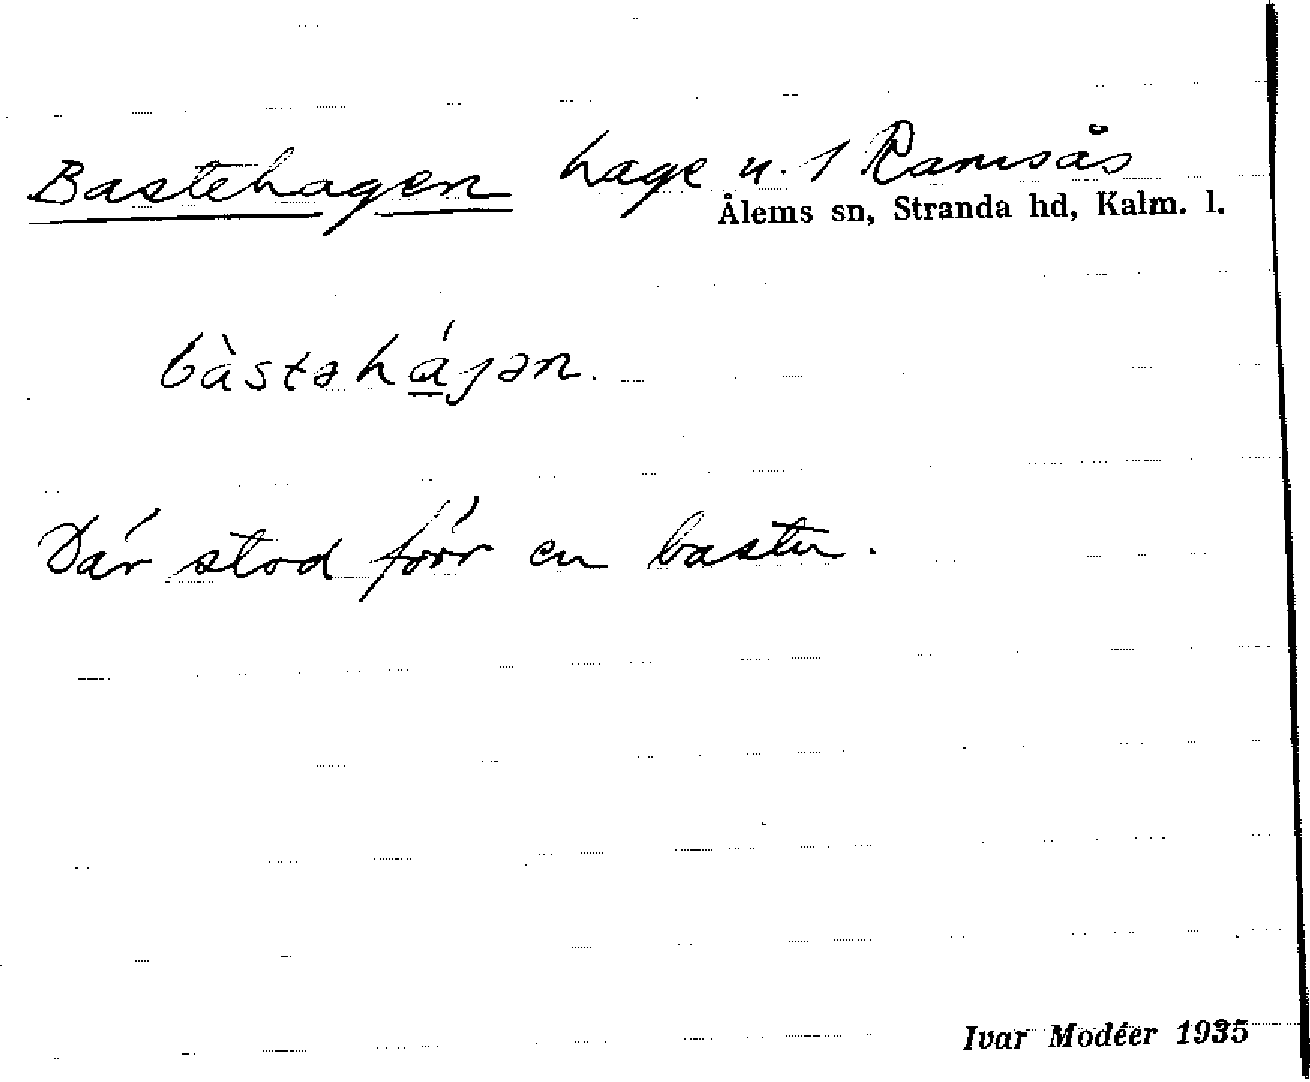 Bastehagen hage u. 1 Ramsås
Ålems sn, Stranda hd, Kalm. l.
bàstəhájən.
Där stod förr en bastu.
Ivar Modéer 1935